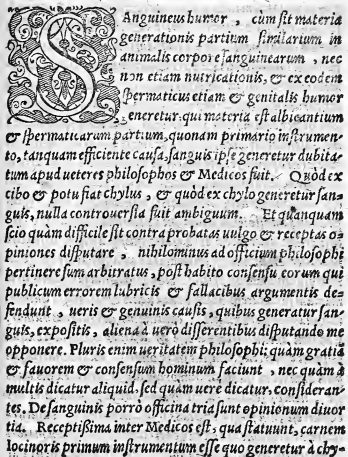 SAnguineus humor, cùm sit materia
generationis partium similarium in
animalis corpore sanguinearum, nec
non etiam nutricationis, & ex eodem
spermaticus etiam & genitalis humor
generetur qui materia est albicantium
& spermaticarum partium, quonam primario instrumen-
to, tanquam efficiente causa, sanguis ipse generetur dubita-
tum apud ueteres philosophos & Medicos fuit. Quòd ex
cibo & potu fiat chylus, & quòd ex chylo generetur san-
guis, nulla controuersia fuit ambiguum. Et quanquam
scio quàm difficile sit contra probatas uulgo & receptas o-
piniones disputare, nihilominus ad officium philosophi
pertinere sum arbitratus, post habito consensu eorum qui
publicum errorem lubricis & fallacibus argumentis de-
fendunt, ueris & genuinis causis, quibus generatur san-
guis, expositis, aliena à uero disserentibus disputando me
opponere. Pluris enim ueritatem philosophi: quàm gratiã
& fauorem & consensum hominum faciunt, nec quàm à
multis dicatur aliquid, sed quàm uerè dicatur, consideran-
tes. De sanguinis porrò officina tria sunt opinionum diuor
tia. Receptißima inter Medicos est, qua statuunt, carnem
iocinoris primum instrumentum esse quo generetur à chy-